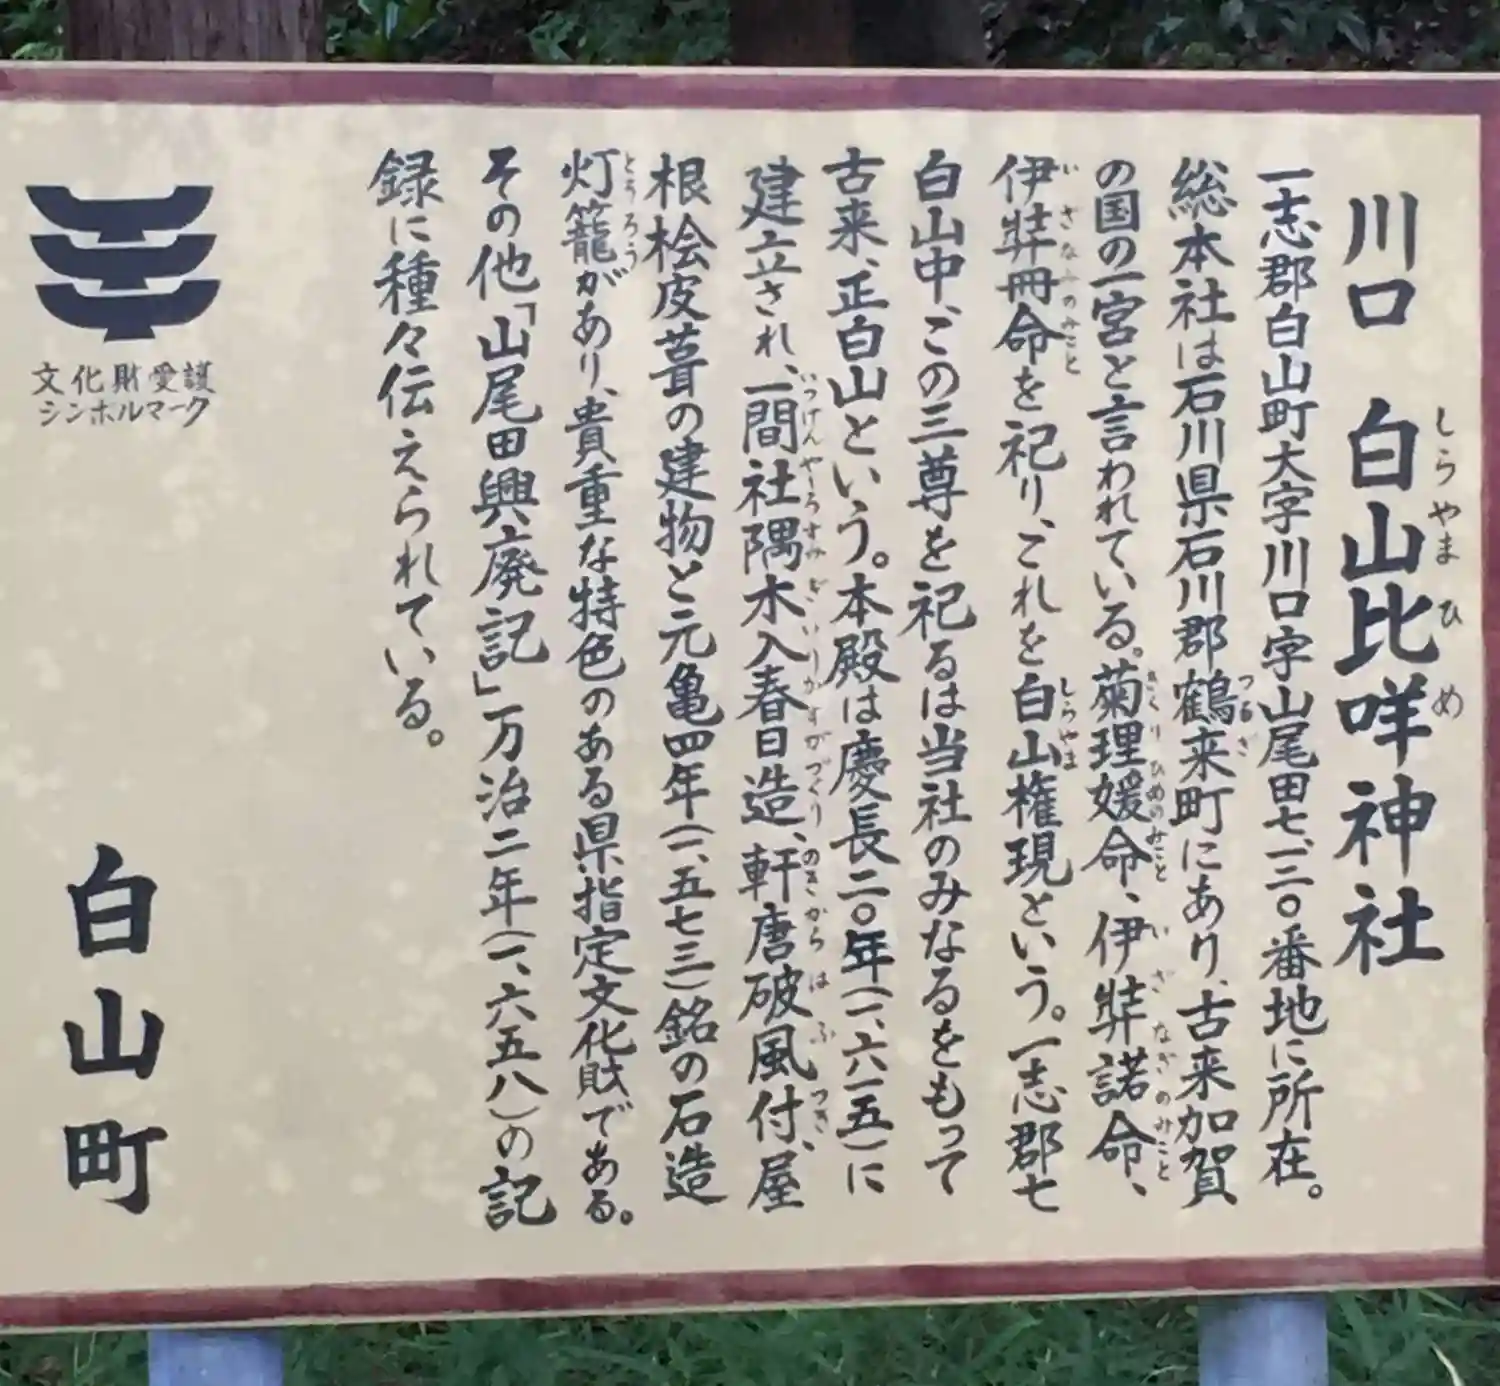 川口 白山比咩神社
一志郡白山町大字川口字山尾田七、一三〇番地に所在。
総本社は石川県石川郡鶴来町にあり、古来加賀
の国の一宮と言われている。菊理媛命、伊弉諾命、
伊弉冊命を祀り、これを白山権現という。一志郡七
白山中、この三尊を祀るは当社のみなるをもって
古来、正白山という。本殿は慶長二〇年(一、六一五)に
建立され、一間社隅木入春日造、軒唐破風付、屋
根桧皮葺の建物と元亀四年(一、五七三)銘の石造
灯籠があり、貴重な特色のある県指定文化財である。
その他「山尾田興廃記」万治二年(一、六五八)の記
録に種々伝えられている。
文化財愛護
シンボルマーク
白山町